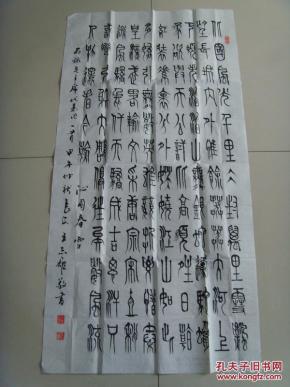 北國風光千里冰封萬里雪飄
望長城內外惟餘莽莽大河上
下頓失滔滔山舞銀蛇原馳蠟
象欲與天公試比高須晴日看
紅裝素裹分外妖嬈江山如此
多嬌引無數英雄競折腰惜秦
皇漢武略輸文采唐宗宋祖稍
遜風騷一代天驕成吉思汗只
識彎弓射大雕俱往矣數風流
人物還看今朝 沁園春雪
毛主席 甲午仲秋 書
孔夫子旧书网